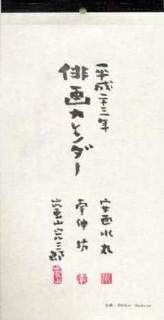 平成二十三年
俳画カレンダー
安西水丸
南伸坊
嵐山光三郎